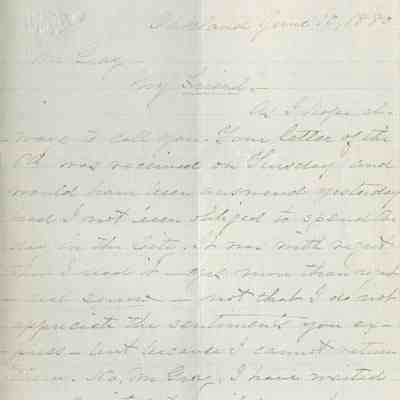 Oakland June 10, 1880
Mr Gray -
My Friend -
As I hope al-
-ways to call you. Your letter of the
was received on Tuesday and
would have been answered yesterday
had I not been obliged to spend the
day in the City. It was with regret
that I read it - yes more than regret
- real sorrow - not that I do not
appreciate the sentiments you ex-
-press - but because I cannot return
them. No, Mr Gray, I have waited